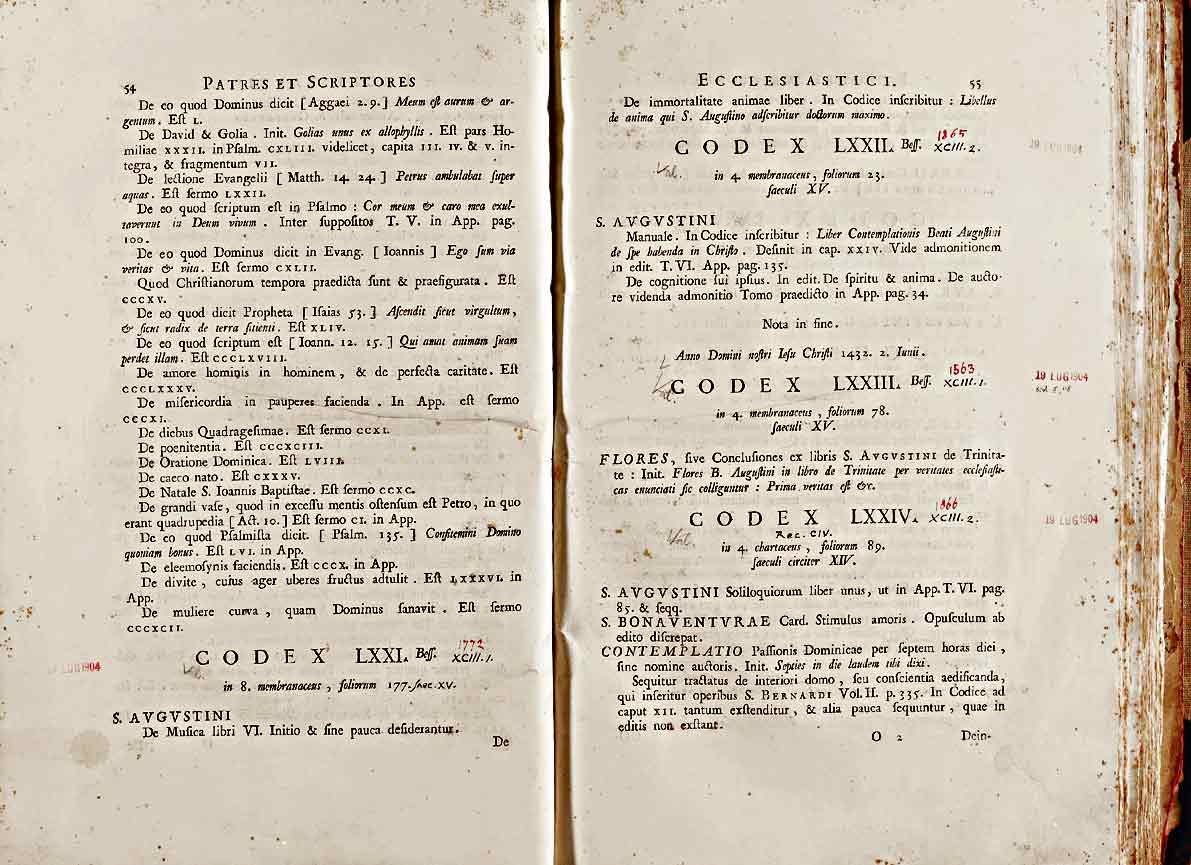 54 PATRES ET SCRIPTORES
De eo quod Dominus dicit [ Aggaei 2. 9. ] Meum eſt aurum & ar-
gentum. Eſt L.
De David & Golia . Init. Golias unus ex allophyllis . Eſt pars Ho-
miliae XXXII. in Pſalm. CXLIII. videlicet, capita III. IV. & V. in-
tegra, & fragmentum VII.
De lectione Evangelii [ Matth. 14. 24. ] Petrus ambulabat ſuper
aquas. Eſt ſermo LXXII.
De eo quod ſcriptum eſt in Pſalmo : Cor meum & caro mea exul-
taverunt in Deum vivum . Inter ſuppoſitos T. V. in App. pag.
100.
De eo quod Dominus dicit in Evang. [ Ioannis ] Ego ſum via
veritas & vita. Eſt ſermo CXLII.
Quod Chriſtianorum tempora praedicta ſunt & praefigurata . Eſt
CCCXV.
De eo quod dicit Propheta [ Iſaias 53. ] Aſcendit ſicut virgultum,
& ſicut radix de terra ſitienti. Eſt XLIV.
De eo quod ſcriptum eſt [ Ioann. 12. 15. ] Qui amat animam ſuam
perdet illam. Eſt CCCLXVIII.
De amore hominis in hominem, & de perfecta caritate. Eſt
CCCLXXXV.
De miſericordia in pauperes facienda . In App. eſt ſermo
CCCXI.
De diebus Quadrageſimae. Eſt ſermo CCXI.
De poenitentia. Eſt CCCXCIII.
De Oratione Dominica. Eſt LVIII.
De caeco nato. Eſt CXXXV.
De Natale S. Ioannis Baptiſtae. Eſt ſermo CCXC.
De grandi vaſe, quod in exceſſu mentis oſtenſum eſt Petro, in quo
erant quadrupedia [ Act. 10. ] Eſt ſermo CI. in App.
De eo quod Pſalmiſta dicit. [ Pſalm. 135. ] Confitemini Domino
quoniam bonus. Eſt LVI. in App.
De eleemoſynis faciendis. Eſt CCCX. in App.
De divite, cuius ager uberes fructus adtulit . Eſt LXXXVI. in
App.
De muliere curva , quam Dominus ſanavit . Eſt ſermo
CCCXCII.
1772
CODEX LXXI. Beſſ. XCIII.1.
LUG 1904
in 8. membranaceus, foliorum 177. saec. XV.
S. AVGVSTINI
De Muſica libri VI. Initio & fine pauca deſiderantur.
De
ECCLESIASTICI. 55
De immortalitate animae liber . In Codice inſcribitur : Libellus
de anima qui S. Auguſtino adſcribitur doctorum maximo.
1865
CODEX LXXII. Beſſ. XCIII. 2.
19 LUG 1904
Val.
in 4. membranaceus, foliorum 23.
ſaeculi XV.
S. AVGVSTINI
Manuale. In Codice inſcribitur : Liber Contemplationis Beati Auguſtini
de ſpe habenda in Chriſto . Deſinit in cap. XXIV. Vide admonitionem
in edit. T. VI. App. pag. 135.
De cognitione ſui ipſius. In edit. De ſpiritu & anima. De aucto-
re videnda admonitio Tomo praedicto in App. pag. 34.
Nota in fine.
Anno Domini noſtri Ieſu Chriſti 1432. 2. Iunii.
1563
CODEX LXXIII. Beſſ. XCIII.1.
19 LUG 1904
Val.
in 4. membranaceus, foliorum 78.
ſaeculi XV.
FLORES, ſive Concluſiones ex libris S. AVGVSTINI de Trinita-
te : Init. Flores B. Auguſtini in libro de Trinitate per veritates eccleſiaſti-
cas enunciati ſic colliguntur : Prima veritas eſt &c.
1866
CODEX LXXIV. XCIII. 2.
19 LUG 1904
Rec. CIV.
Val.
in 4. chartaceus, foliorum 89.
ſaeculi circiter XIV.
S. AVGVSTINI Soliloquiorum liber unus, ut in App. T. VI. pag.
85. & ſeqq.
S. BONAVENTVRAE Card. Stimulus amoris . Opuſculum ab
edito diſcrepat.
CONTEMPLATIO Paſſionis Dominicae per ſeptem horas diei ,
ſine nomine auctoris. Init. Septies in die laudem tibi dixi.
Sequitur tractatus de interiori domo , ſeu conſcientia aedificanda,
qui inſeritur operibus S. BERNARDI Vol. II. p. 335. In Codice ad
caput XII. tantum exſtenditur, & alia pauca ſequuntur , quae in
editis non exſtant.
O 2 Dein-